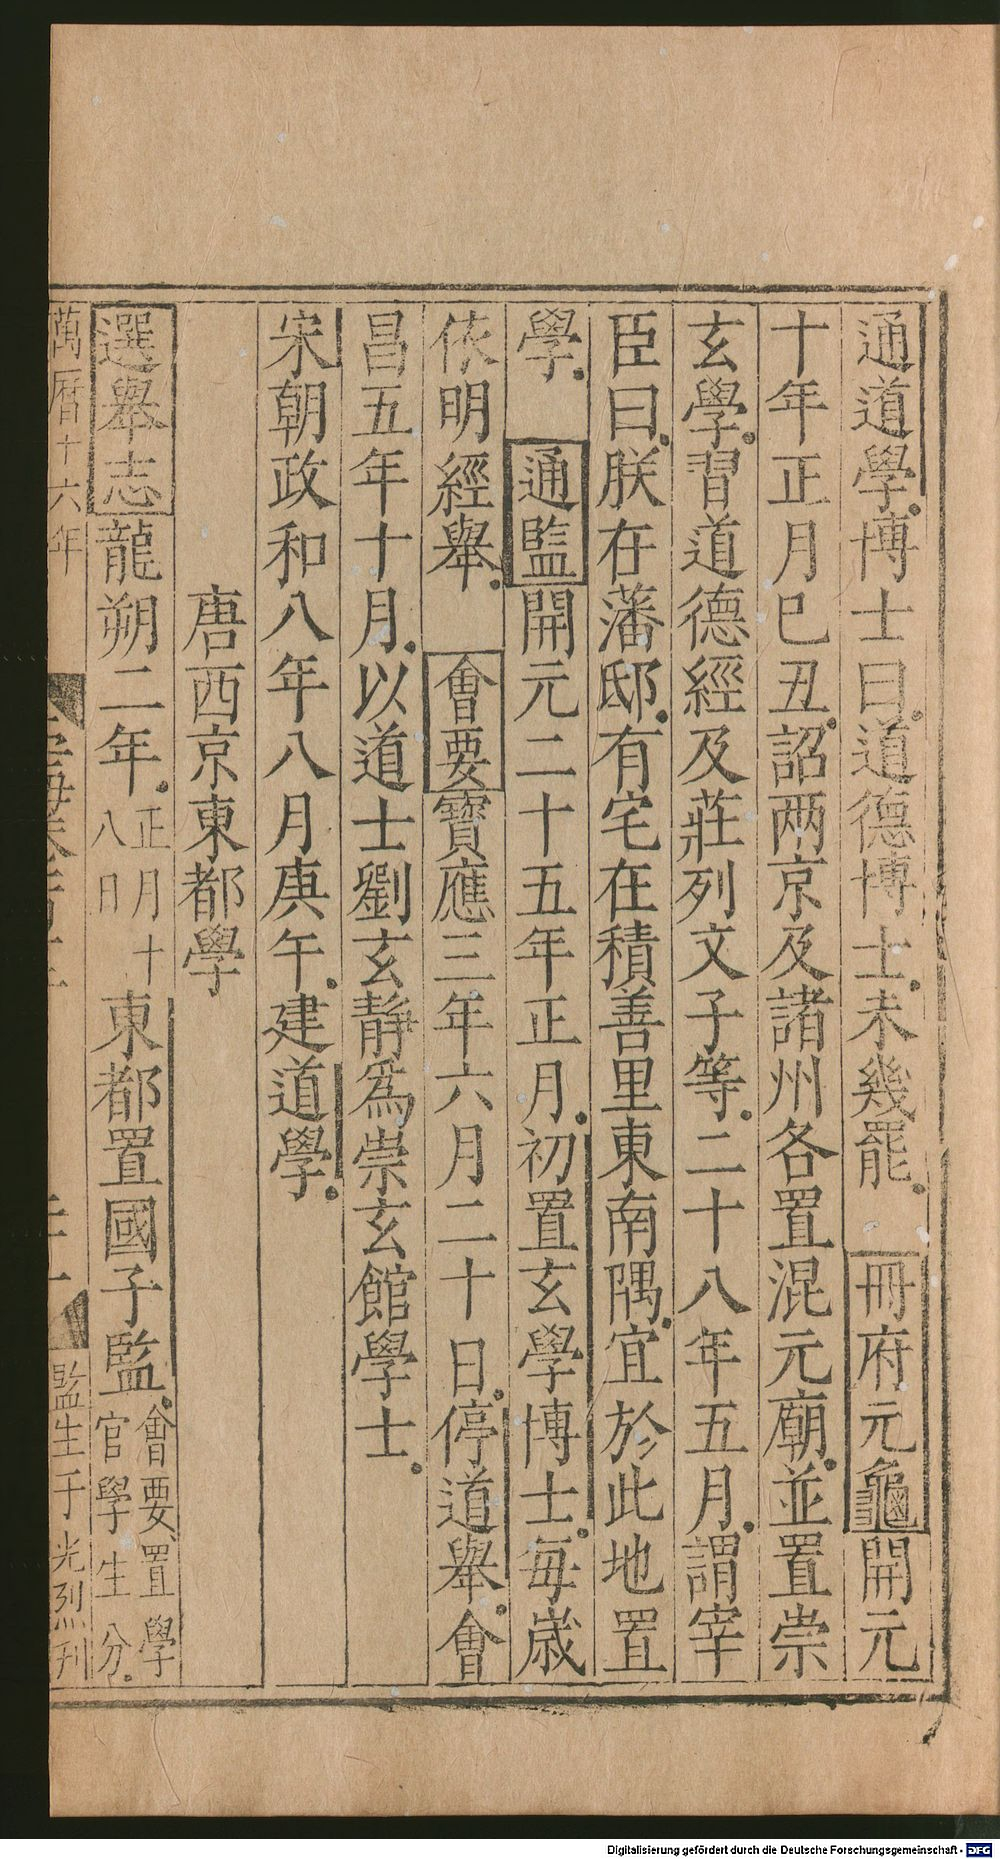 通道學博士曰道德博士未幾罷　冊府元龜開元
十年正月巳丑詔两京及諸州各置混元廟並置崇
玄學習道德經及莊列文子等二十八年五月謂宰
臣曰朕在藩邸有宅在積善里東南隅宜於此地置
學　通監開元二十五年正月初置玄學博士每歳
依明經舉　會要寶應三年六月二十日停道舉會
昌五年十月以道士劉玄靜爲崇玄館學士
宋朝政和八年八月庚午建道學
唐西京東都學
選舉志龍朔二年正月十八日東都置國子監會要置學官學生分
萬曆十六年
監生于光烈刋
Digitalisierung gefördert durch die Deutsche Forschungsgemeinschaft - DFG